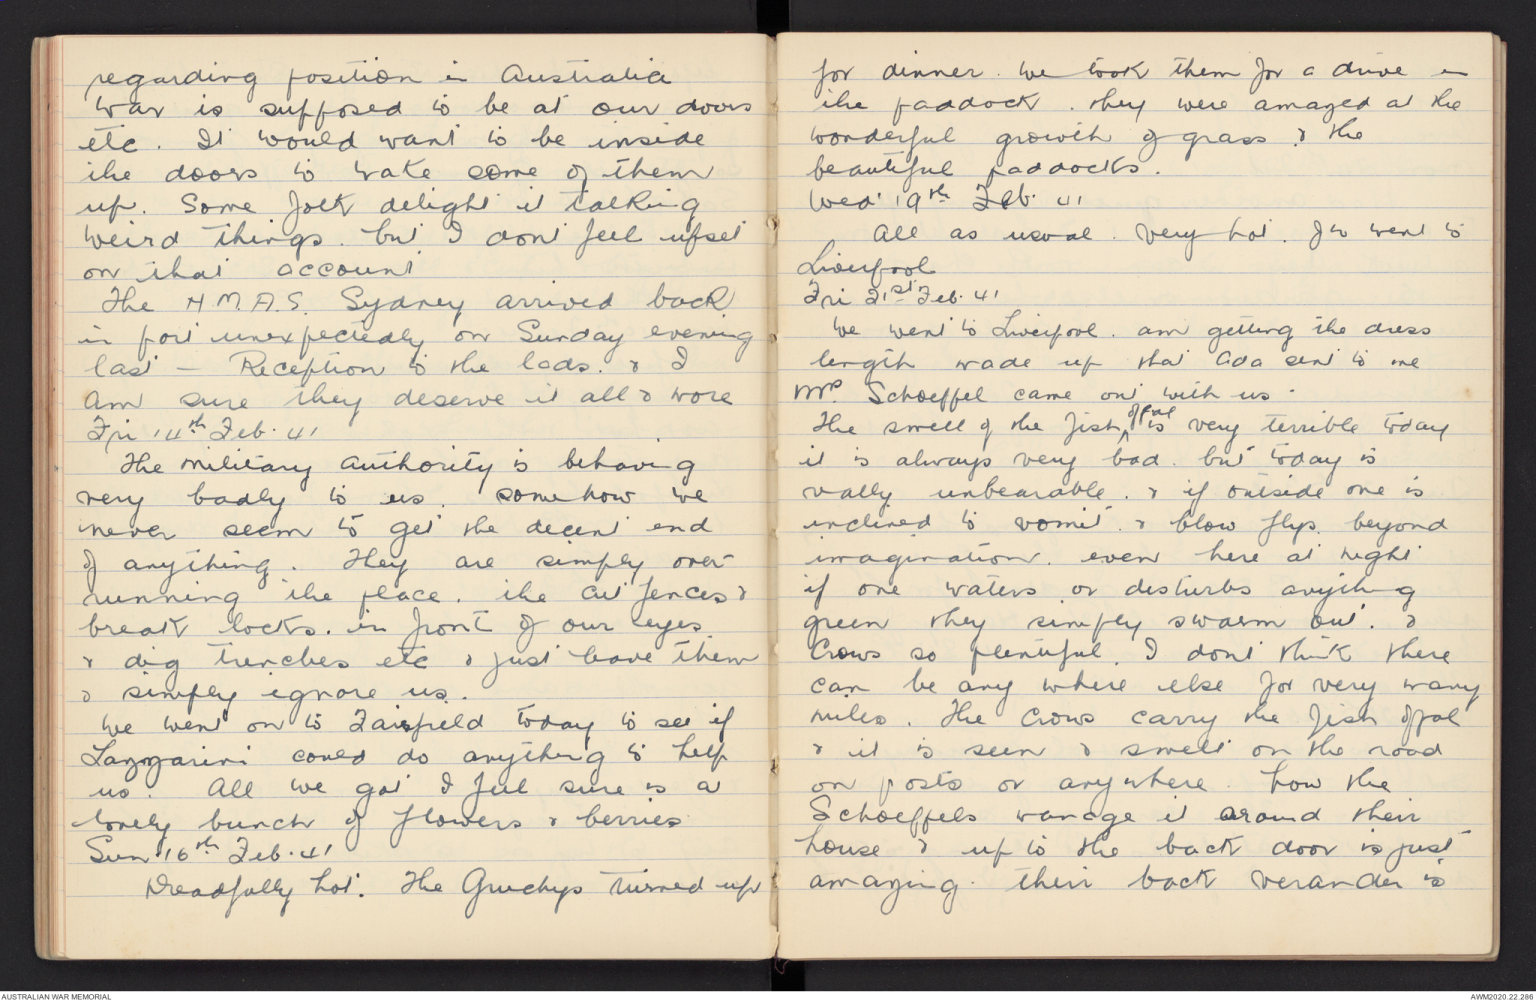 regarding position in Australia
War is supposed to be at our doors
etc. It would want to be inside
the doors to wake some of them
up. Some folk delight it talking
weird things. but I dont feel upset
on that account
The H.M.A.S. Sydney arrived back
in port unexpectedly on Sunday evening
last - Reception to the lads. & I
am sure they deserve it all & more
Fri 14th Feb. 41
The military authority is behaving
very badly to us. somehow we
never seem to get the decent end
of anything. They are simply over-
running the place. the cut fences &
break locks. in front of our eyes
& dig trenches etc & just leave them
& simply ignore us.
We went on to Fairfield today to see if
Lazzarini could do anything to help
us. All we got I feel sure is a
lovely bunch of flowers & berries
Sun 16th Feb. 41
Dreadfully hot. The Gruchys turned up
for dinner. We took them for a drive in
the paddock. they were amazed at the
wonderful growth of grass & the
beautiful paddocks.
Wed 19th Feb. 41
All as usual. Very hot. Jo went to
Liverpool
Fri 21st Feb. 41
We went to Liverpool. am getting the dress
length made up that Ada sent to me
Mrs. Schoeffel came out with us.
The smell of the fish offal is very terrible today
it is always very bad. but today is
really unbearable. & if outside one is
inclined to vomit. & blow flys. beyond
imagination. even here at night
if one waters or disturbs anything
green they simply swarm out. &
Crows so plentiful. I dont think there
can be any where else for very many
miles. The Crows carry the fish offal
& it is seen & smelt on the road
on posts or anywhere. how the
Schoeffels manage it around their
house & up to the back door is just
amazing. their back verandar is
AUSTRALIAN WAR MEMORIAL
AWM2020.22.286